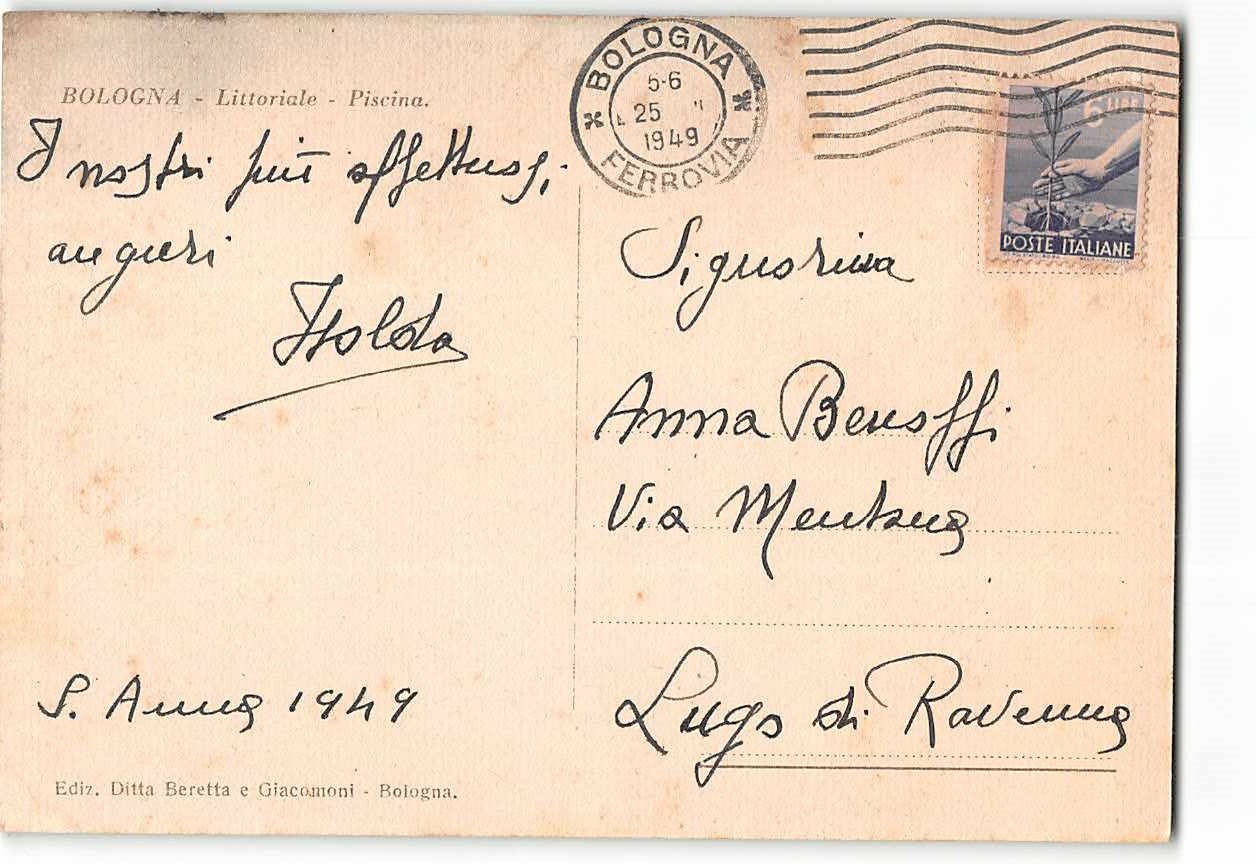 BOLOGNA - Littoriale - Piscina.
I nostri più affettuosi
auguri
Isolda
S. Anna 1949
Ediz. Ditta Beretta e Giacomoni - Bologna.
BOLOGNA
5-6
25
1949
FERROVIA
6 LIRE
POSTE ITALIANE
Signorina
Anna Benoffi
Via Mentana
Lugo di Ravenna